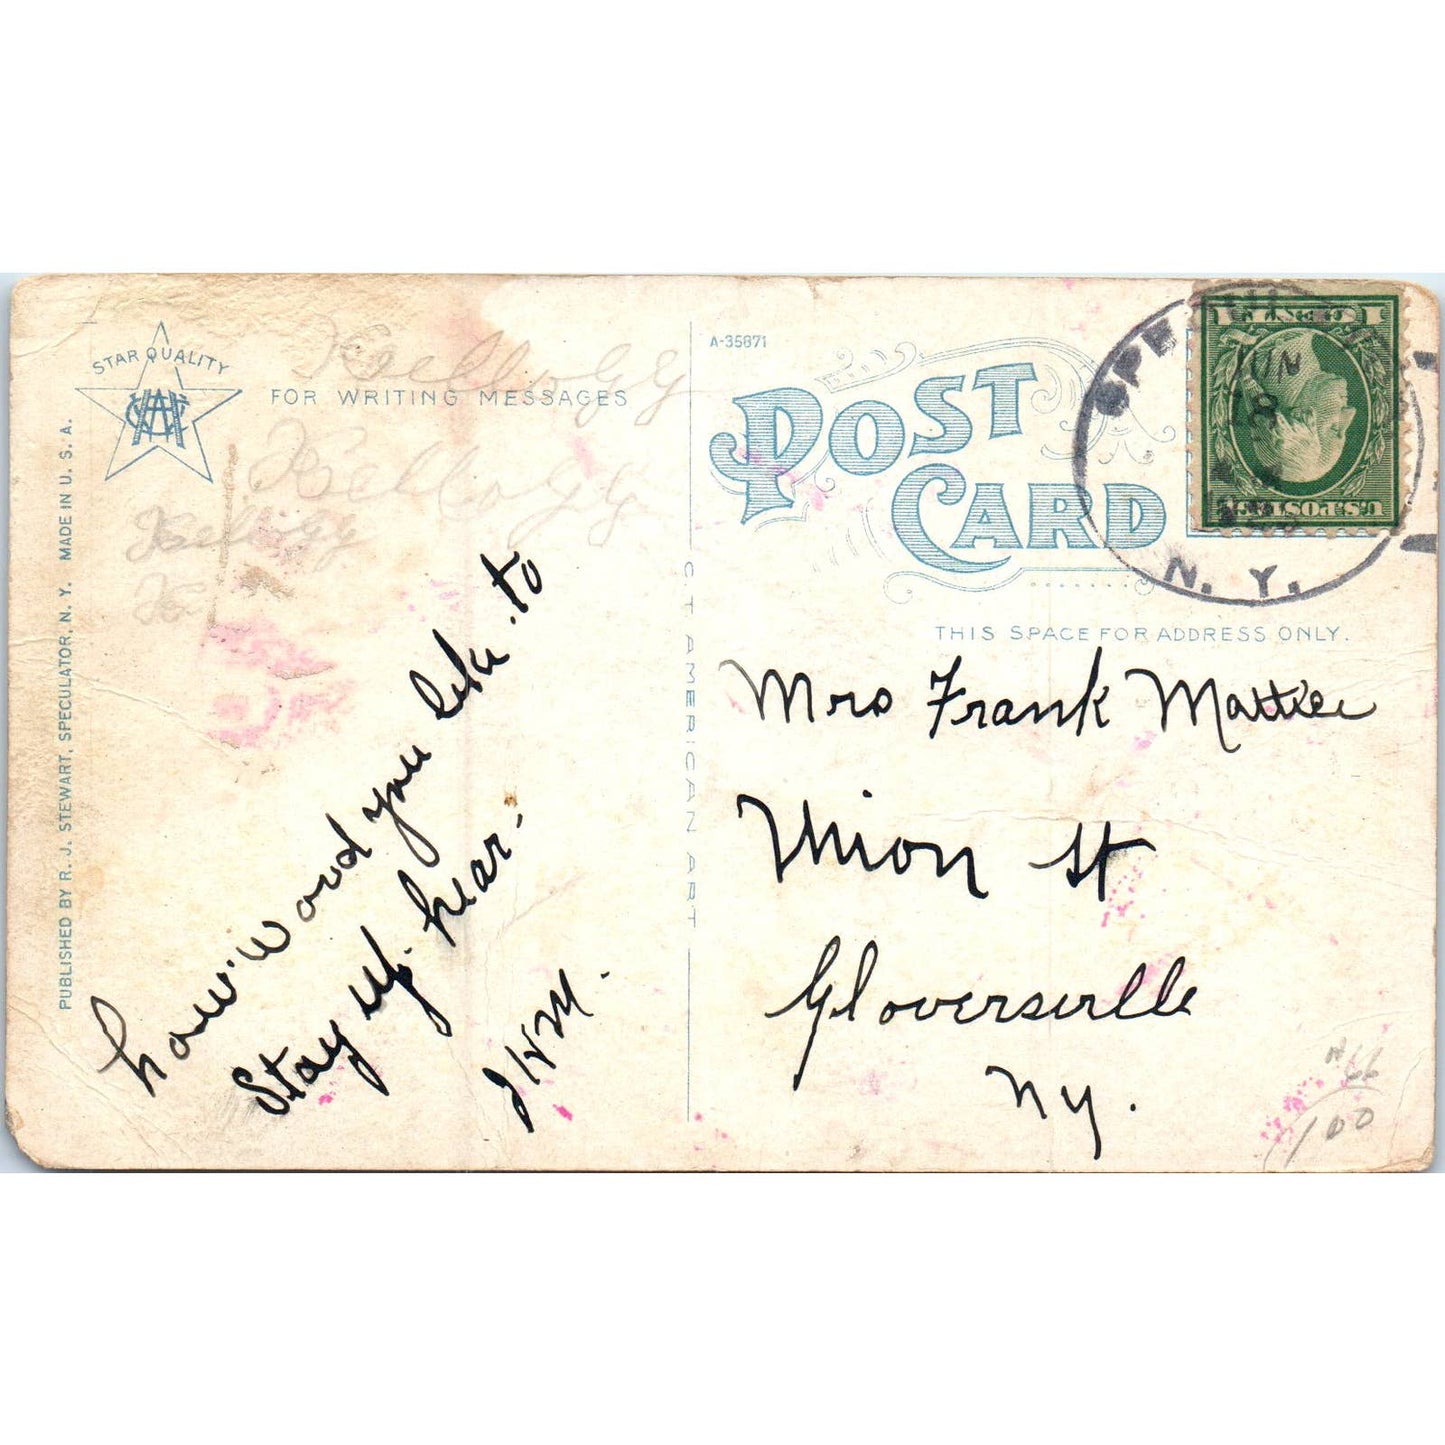 STAR QUALITY
FOR WRITING MESSAGES
Kellogg
Kellogg
Kellogg
Ke
PUBLISHED BY R. J. STEWART, SPECULATOR, N. Y. MADE IN U. S. A.
how. Word you like. to
Stay up. hear.
C T AMERICAN ART
A-35871
POST
CARD
JUN
8
N. Y.
U.S. POSTAGE
1 CENT 1
THIS SPACE FOR ADDRESS ONLY.
Mrs Frank Mattice
Union St
Gloversville
Ny.
66
100